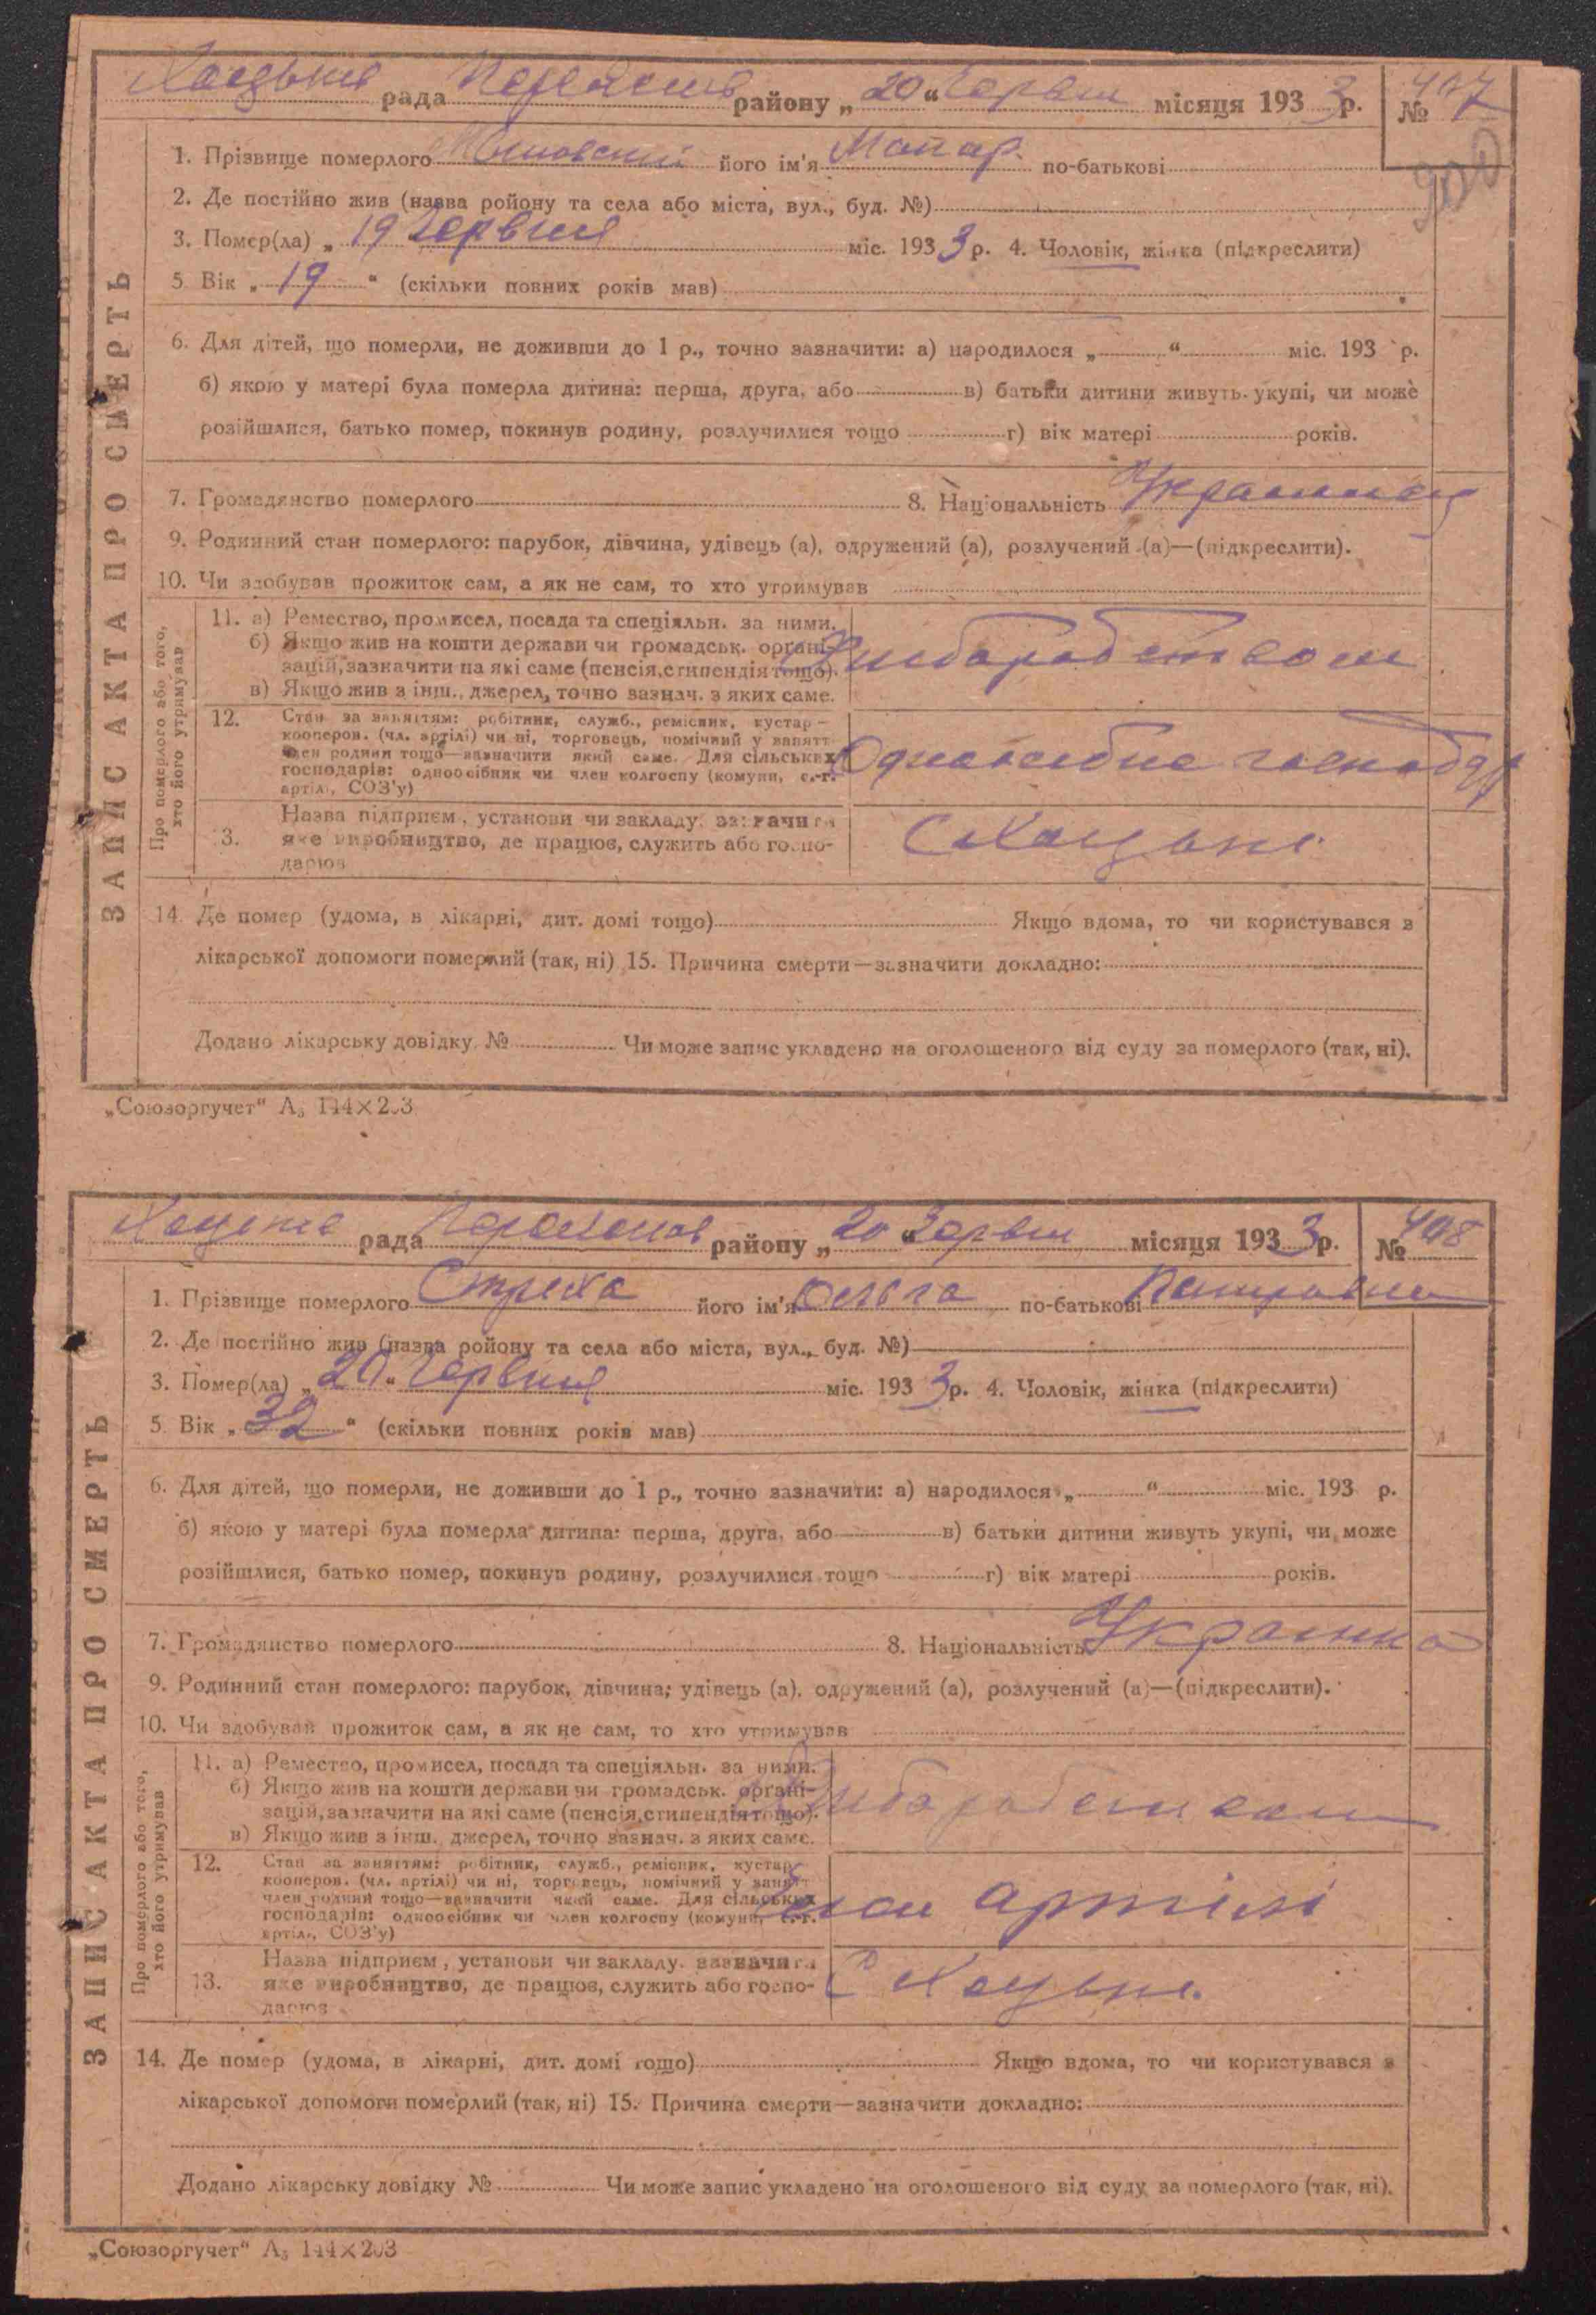 Хоцьке рада Переяслів району „20“ Червня місяця 1933 р. № 497
1. Прізвище померлого його ім'я по-батькові
2. Де постійно жив (назва ройону та села або міста, вул., буд. №)
3. Помер(ла) „ 19 Червня міс. 1933 р. 4. Чоловік, жінка (підкреслити)
5 Вік „ 19 “ (скільки повних років мав)
6. Для дітей, що померли, не доживши до 1 р., точно зазначити: а) народилося „ “ міс. 193 р.
б) якою у матері була померла дитина: перша, друга, або в) батьки дитини живуть укупі, чи може
розійшлися, батько помер, покинув родину, розлучилися тощо г) вік матері років.
7. Громадянство померлого 8. Національність Українець
9. Родинний стан померлого: парубок, дівчина, удівець (а), одружений (а), розлучений (а)—(підкреслити).
10. Чи здобував прожиток сам, а як не сам, то хто утримував
ЗАПИС АКТА ПРО СМЕРТЬ
Про померлого або того,
хто його утримував
11. а) Ремество, промисел, посада та спеціяльн. за ними.
б) Якщо жив на кошти держави чи громадськ. органі-
зацій, зазначити на які саме (пенсія, стипендія тощо).
в) Якщо жив з інш., джерел, точно зазнач. з яких саме.
Хліборобством
12. Стан за заняттям: робітник, служб., ремісник, кустар—
кооперов. (чл. артілі) чи ні, торговець, помічний у занятт
член родини тощо—зазначити який саме. Для сільських
господарів: одноосібник чи член колгоспу (комуни, с.-г.
артілі, СОЗ'у)
Одноосібне господар
3. Назва підприєм, установи чи закладу. зазначити
яке виробництво, де працює, служить або госпо-
дарює
С Хоцьке
14. Де помер (удома, в лікарні, дит. домі тощо) Якщо вдома, то чи користувався з
лікарської допомоги померлий (так, ні) 15. Причина смерти—зазначити докладно:
Додано лікарську довідку № Чи може запис укладено на оголошеного від суду за померлого (так, ні).
„Союзоргучет“ А₅ 144×203
Хоцьке рада Переяслов району „20“ Червня місяця 1933 р. № 498
1. Прізвище померлого Стреха його ім'я Ольга по-батькові
2. Де постійно жив (назва ройону та села або міста, вул., буд. №)
3. Помер(ла) „20“ Червня міс. 1933 р. 4. Чоловік, жінка (підкреслити)
5 Вік „ 32 “ (скільки повних років мав)
6. Для дітей, що померли, не доживши до 1 р., точно зазначити: а) народилося „ “ міс. 193 р.
б) якою у матері була померла дитина: перша, друга, або в) батьки дитини живуть укупі, чи може
розійшлися, батько помер, покинув родину, розлучилися тощо г) вік матері років.
7. Громадянство померлого 8. Національність Українка
9. Родинний стан померлого: парубок, дівчина; удівець (а), одружений (а), розлучений (а)—(підкреслити).
10. Чи здобував прожиток сам, а як не сам, то хто утримував
ЗАПИС АКТА ПРО СМЕРТЬ
Про померлого або того,
хто його утримував
11. а) Ремество, промисел, посада та спеціяльн. за ними.
б) Якщо жив на кошти держави чи громадськ. органі-
зацій, зазначити на які саме (пенсія, стипендія тощо).
в) Якщо жив з інш., джерел, точно зазнач. з яких саме.
Хліборобством
12. Стан за заняттям: робітник, служб., ремісник, кустар
кооперов. (чл. артілі) чи ні, торговець, помічний у занятт
член родини тощо—зазначити який саме. Для сільських
господарів: одноосібник чи член колгоспу (комуни, с.-г.
артілі, СОЗ'у)
член артілі
13. Назва підприєм, установи чи закладу. зазначити
яке виробництво, де працює, служить або госпо-
дарює
С Хоцьке.
14. Де помер (удома, в лікарні, дит. домі тощо) Якщо вдома, то чи користувався з
лікарської допомоги померлий (так, ні) 15. Причина смерти—зазначити докладно:
Додано лікарську довідку № Чи може запис укладено на оголошеного від суду за померлого (так, ні).
„Союзоргучет“ А₅ 144×203